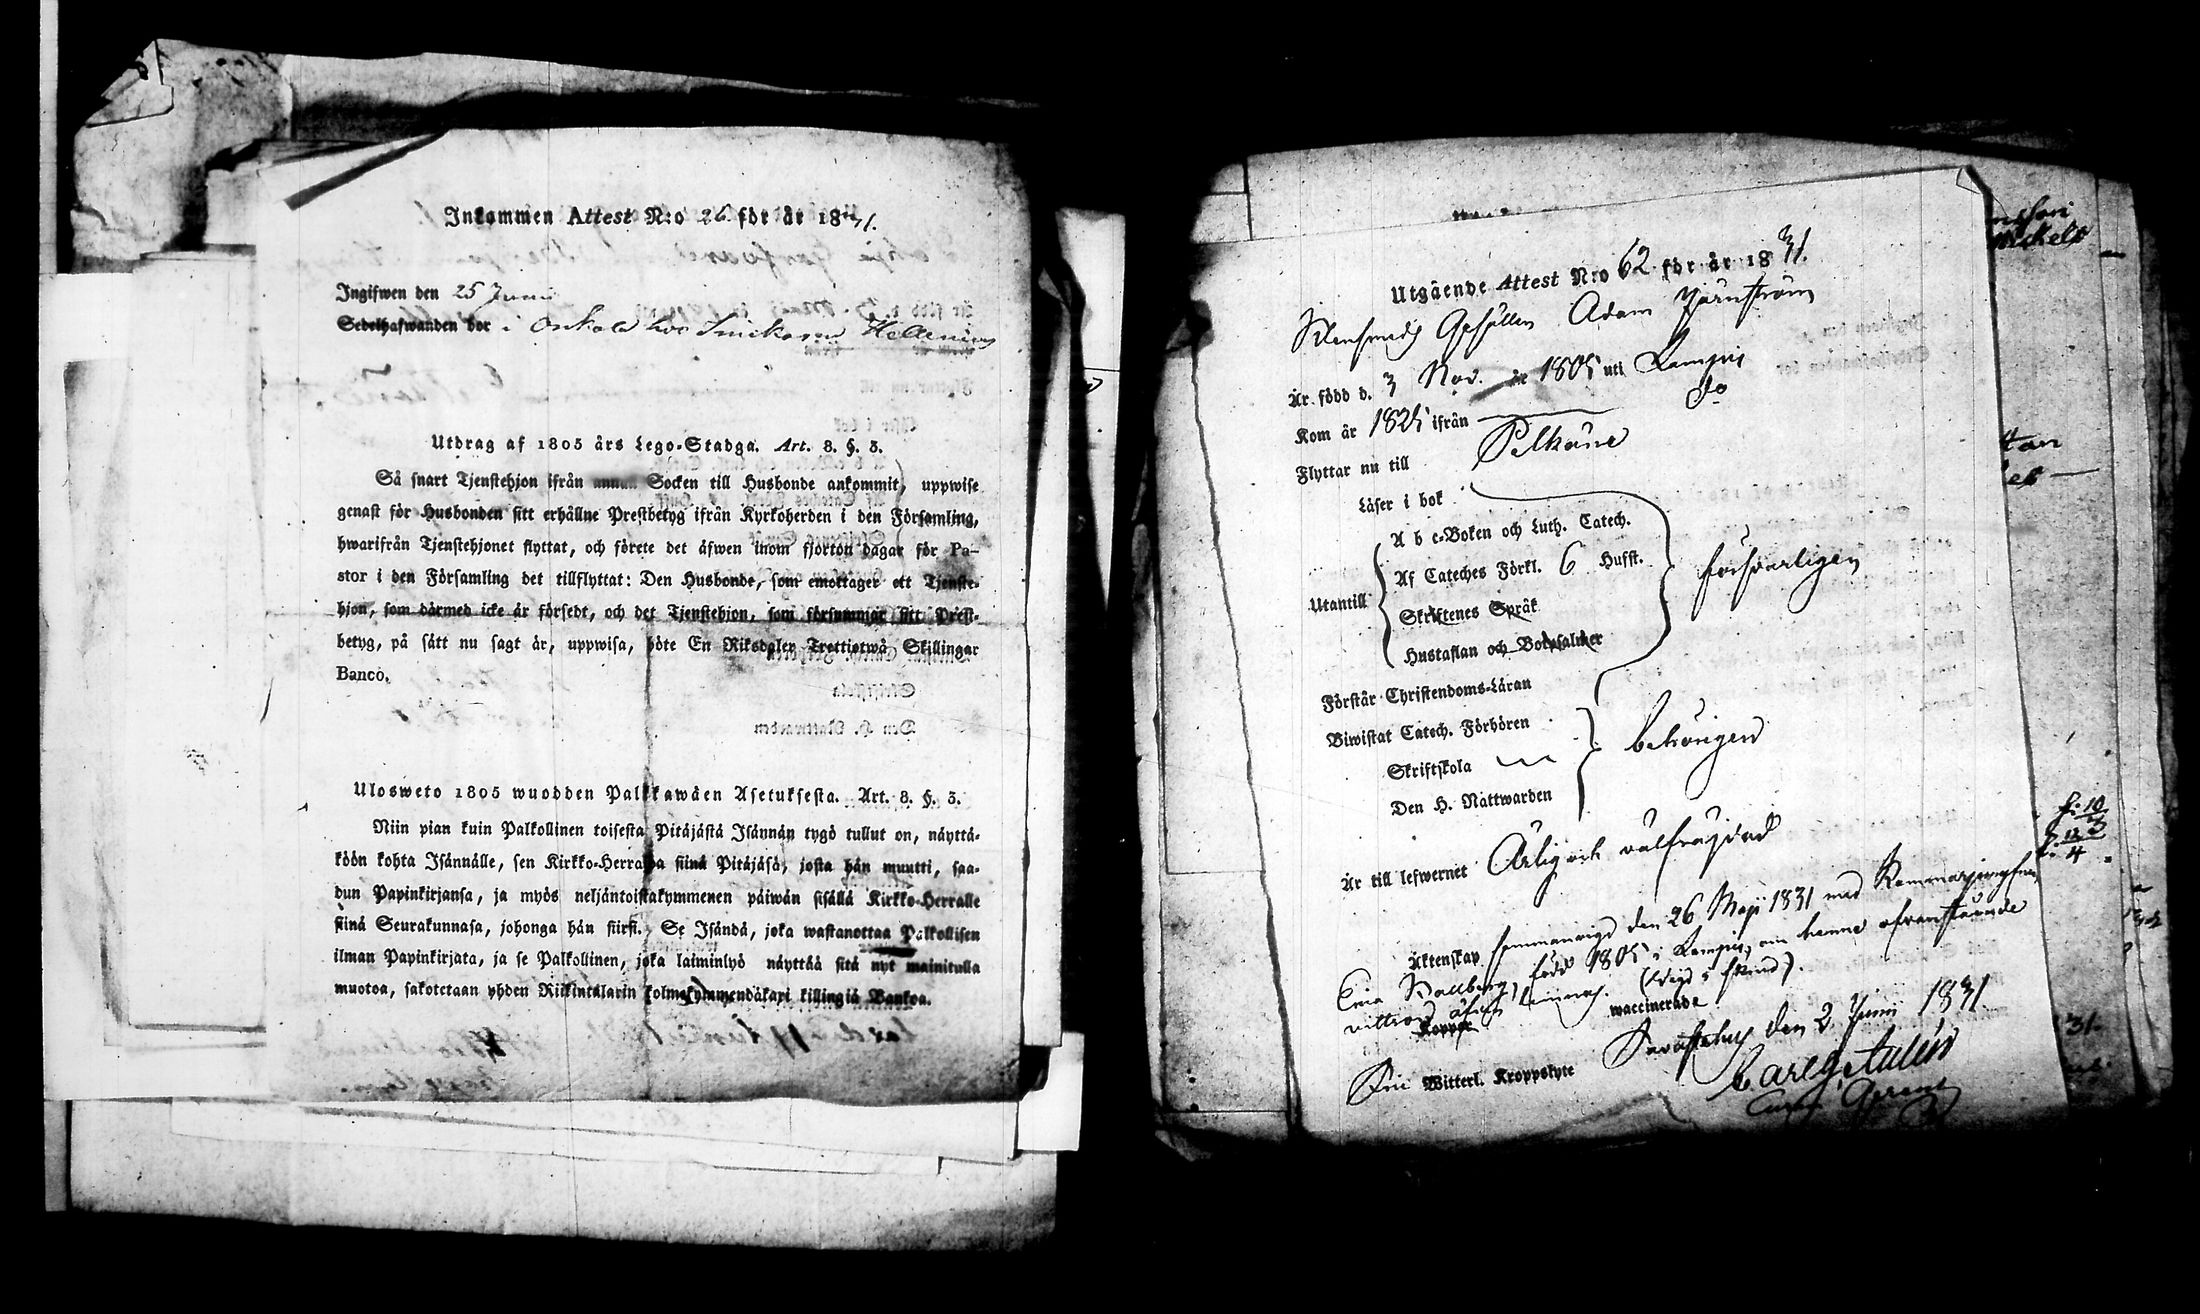 Inkommen Attest N:o 26 för år 1831.
Ingifwen den 25 Junii
Sedelhafwanden bor i Onkala hos Snickaren Hellenius
Utdrag af 1805 års Lego-Stadga. Art. 8. §. 3.
Så snart Tjenstehjon ifrån annan Socken till Husbonde ankommit, uppwise
genast för Husbonden sitt erhållne Prestbetyg ifrån Kyrkoherden i den Församling,
hwarifrån Tjenstehjonet flyttat, och förete det äfwen inom fjorton dagar för Pa-
stor i den Församling det tillflyttat: Den Husbonde, som emottager ett Tjenste-
hjon, som dårmed icke är försedt, och det Tjenstehjon, som försummar sitt Prest-
betyg, på sätt nu sagt är, uppwisa, böte En Riksdaler Trettiotwå Skillingar
Banco.
Ulosweto 1805 wuodden Palkkawäen Asetuksesta. Art. 8. §. 3.
Niin pian kuin Palkollinen toisesta Pitäjästä Isännän tygö tullut on, näyttä-
köön kohta Isännälle, sen Kirkko-Herralda siinä Pitäjäsä, josta hän muutti, saa-
dun Papinkirjansa, ja myös neljäntoistakymmenen päiwän sisällä Kirkko-Herralle
siinä Seurakunnasa, johonga hän siirsi. Se Isändä, joka wastanottaa Palkollisen
ilman Papinkirjata, ja se Palkollinen, joka laiminlyö näyttää sitä nyt mainitulla
muotoa, sakotetaan yhden Riikintalarin kolmekymmendäkaxi killingiä Bankoa.
Utgående Attest N:o 62 för år 1831.
Klensmeds Gesällen Adam Hjernström
Är född d. 3 Nov. år 1805 uti Lampis
Kom år 1825 ifrån do
Flyttar nu till Pelkäne
Läser i bok
Utantill
A b c-Boken och Luth. Catech.
Af Cateches Förkl. 6 Hufst.
Skriftenes Språk
Hustaflan och Botpsalmer
försvarligen
Förstår Christendoms-Läran
Biwistat Catech. Förhören
Skriftskola
Den H. Nattwarden
behörigen
Är till lefwernet Ärlig och välfräjdad
Äktenskap sammanvigd den 26 Maji 1831 med Kammarjungfrun
född 1805 i Lampis, om henne ofvanstående
vittnord äfven lemnas.
Koppor waccinerade
Fri Witterl. Kroppslyte
Tavastehus den 2 Junii 1831